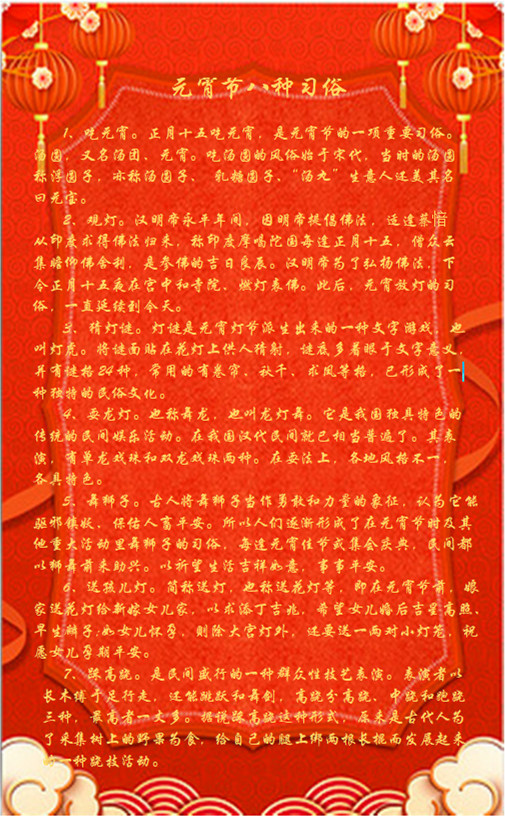 元宵节八种习俗
1、吃元宵。正月十五吃元宵，是元宵节的一项重要习俗。
汤圆，又名汤团、元宵。吃汤圆的风俗始于宋代，当时的汤圆
称浮圆子，亦称汤圆子、乳糖圆子、“汤丸”生意人还美其名
曰元宝。
2、观灯。汉明帝永平年间，因明帝提倡佛法，适逢蔡愔
从印度求得佛法归来，称印度摩喝陀国每逢正月十五，僧众云
集瞻仰佛舍利，是参佛的吉日良辰。汉明帝为了弘扬佛法，下
令正月十五夜在宫中和寺院、燃灯表佛。此后，元宵放灯的习
俗，一直延续到今天。
3、猜灯谜。灯谜是元宵灯节派生出来的一种文字游戏，也
叫灯虎。将谜面贴在花灯上供人猜射，谜底多着眼于文字意义，
并有谜格24种，常用的有卷帘、秋千、求凤等格，已形成了一
种独特的民俗文化。
4、耍龙灯。也称舞龙，也叫龙灯舞。它是我国独具特色的
传统的民间娱乐活动。在我国汉代民间就已相当普遍了。其表
演，有单龙戏珠和双龙戏珠两种。在耍法上，各地风格不一，
各具特色。
5、舞狮子。古人将舞狮子当作勇敢和力量的象征，认为它能
驱邪镇妖、保佑人畜平安。所以人们逐渐形成了在元宵节时及其
他重大活动里舞狮子的习俗，每逢元宵佳节或集会庆典，民间都
以狮舞前来助兴。以祈望生活吉祥如意，事事平安。
6、送孩儿灯。简称送灯，也称送花灯等，即在元宵节前，娘
家送花灯给新嫁女儿家，以求添丁吉兆，希望女儿婚后吉星高照、
早生麟子;如女儿怀孕，则除大宫灯外，还要送一两对小灯笼，祝
愿女儿孕期平安。
7、踩高跷。是民间盛行的一种群众性技艺表演。表演者以
长木缚于足行走，还能跳跃和舞剑，高跷分高跷、中跷和跑跷
三种，最高者一丈多。据说踩高跷这种形式，原来是古代人为
了采集树上的野果为食，给自己的腿上绑两根长棍而发展起来
的一种跷技活动。